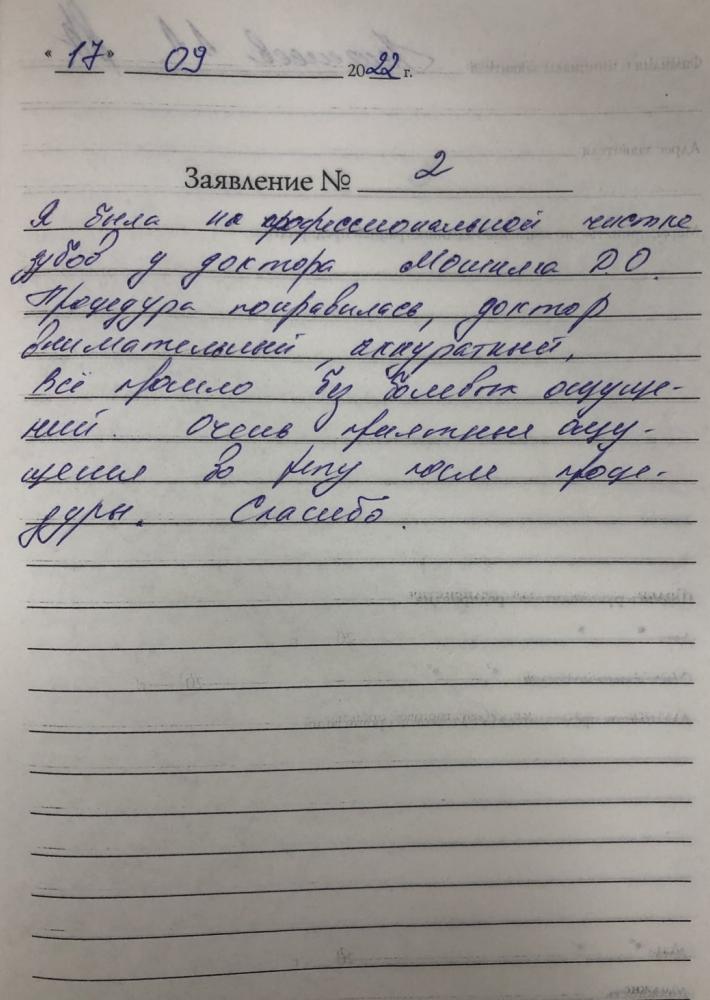 « 17 » 09 2022 г.
Заявление № 2
Я была на профессиональной чистке
зубов у доктора Мошима Д О.
Процедура понравилась, доктор
внимательный, аккуратный,
Всё прошло без болевых ощуще-
ний. Очень приятные ощу-
щения во рту после проце-
дуры. Спасибо.